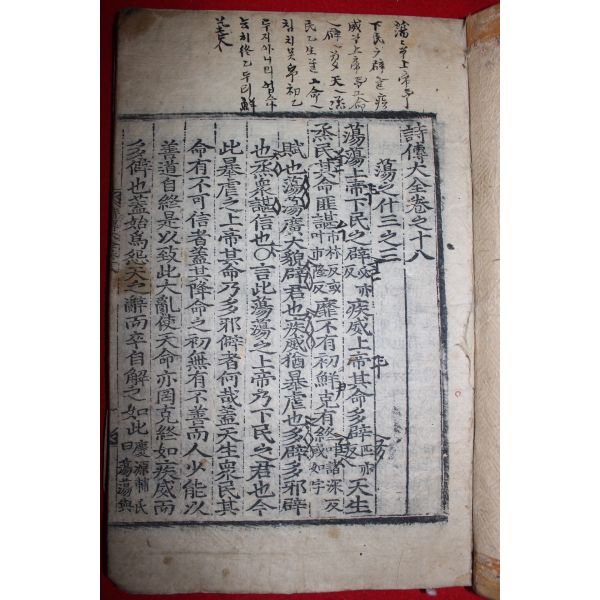 蕩蕩上帝
下民之辟
詩傳大全卷之十八
蕩之什三之三
蕩蕩上帝下民之辟必亦反疾威上帝其命多辟匹亦反天生
烝民其命匪諶市林反或叶市隆反靡不有初鮮克有終叶諸深反或如字
賦也蕩蕩廣大貌辟君也疾威猶暴虐也多辟多邪辟
也烝衆諶信也○言此蕩蕩之上帝乃下民之君也今
此暴虐之上帝其命乃多邪僻者何哉蓋天生衆民其
命有不可信者蓋其降命之初無有不善而人少能以
善道自終是以致此大亂使天命亦罔克終如疾威而
多僻也蓋始爲怨天之辭而卒自解之如此慶源輔氏曰蕩蕩與